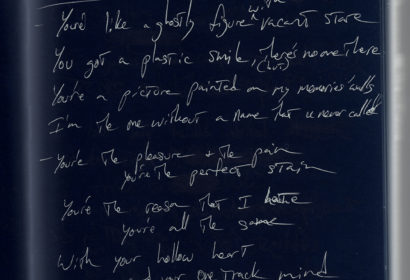 You'd like a ghostly figure with vacant stare
You got a plastic smile, (but) there's no one there
You're a picture painted on my memories' walls
I'm the one without a name that u never called
- You're the pleasure + the pain
you're the perfect stain
You're the reason that I hate
you're all the same
With your hollow heart
your one track mind